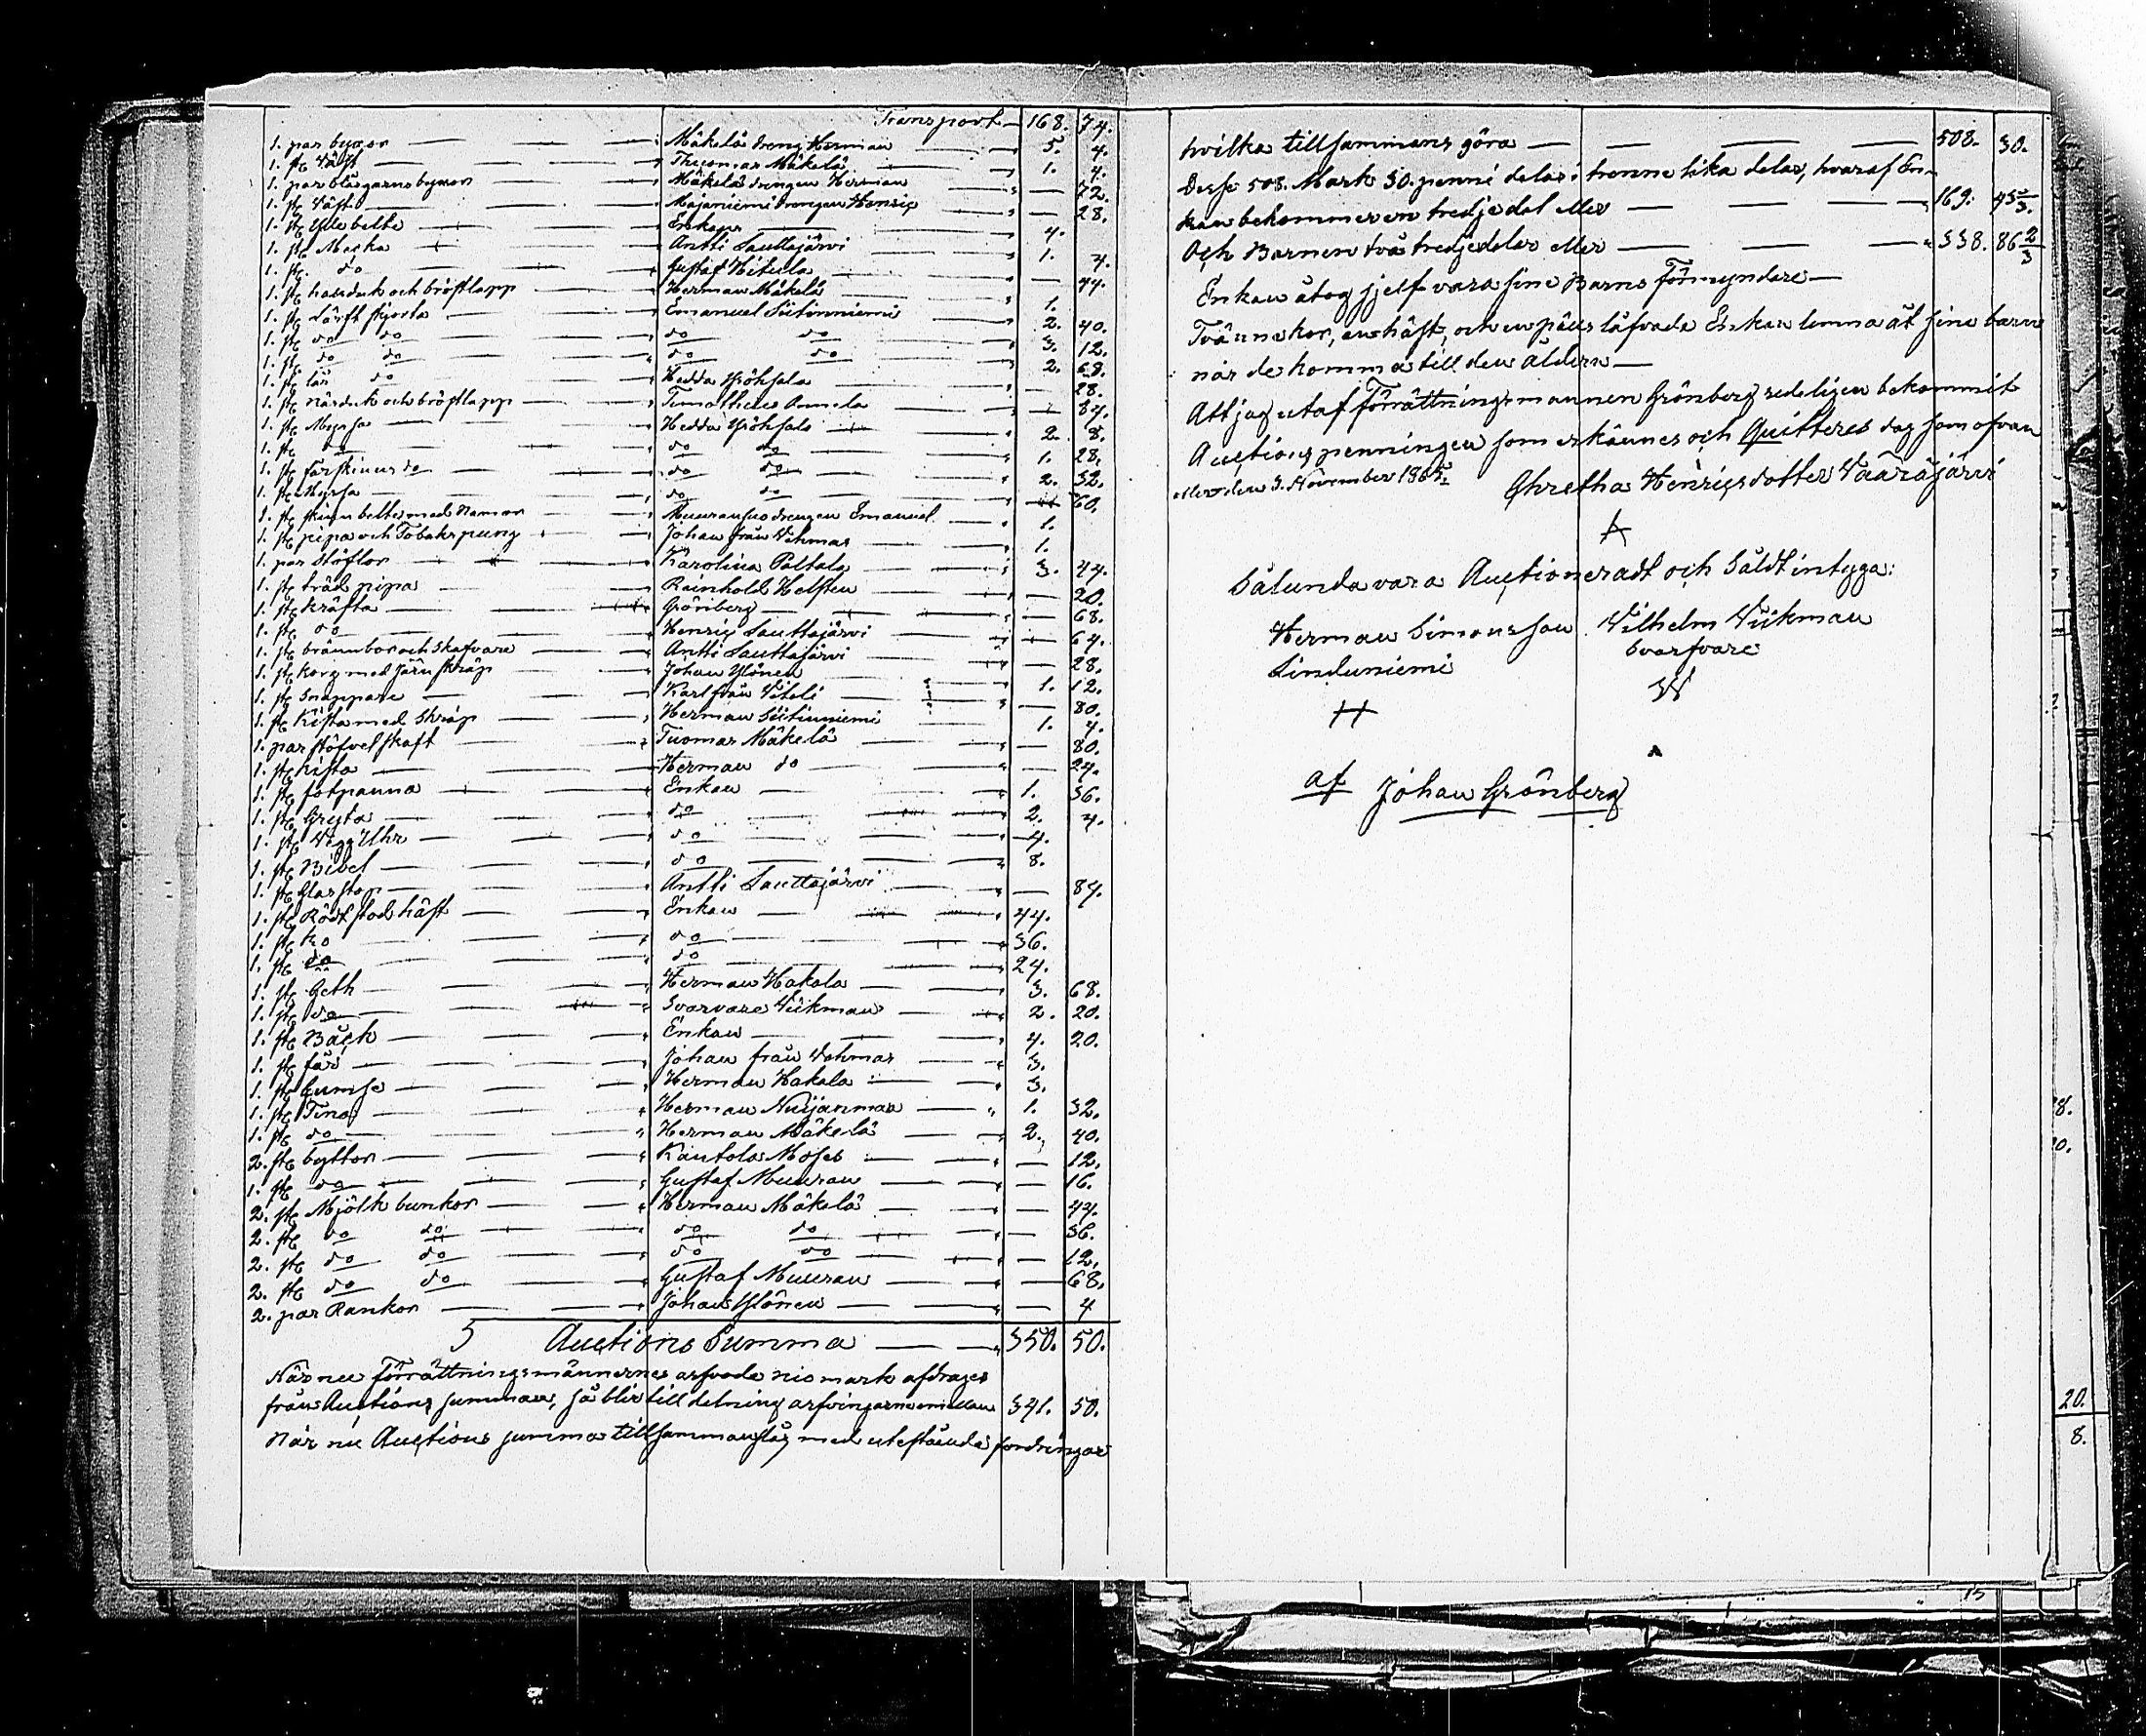 Transport 168. 74.
1. par byxor Mäkelä dreng Herman 5. 4.
1. st Väst Thuomas Mäkelä 1. 4.
1. par blågarns byxor Mäkelä drengen Herman — 72.
1. st Väst Majaniemi drengen Henric — 28.
1. st Ylle bälte Enkan 4.
1. st Macka Antti Lauttajärvi 1. 4.
1. st do Gustaf Hitula — 44.
1. st halsduk och bröstlapp Herman Mäkelä 1.
1. st lärft skjorta Emanuel Siitinniemi 2. 40.
1. st do do do do 3. 12.
1. st do do do do 2. 68.
1. st do Hedda Yröksala — 28.
1. st näsduk och bröstlapp Timotheus Annila — 84.
1. st Myssa Hedda Yröksala 2. 8.
1. st do do do 1. 28.
1. st fårskinns do do do 2. 32.
1. st Myssa do do 60.
1. st skinn bälte med Muuransuo drengen Emanuel 1.
1. st pipa och Tobakspung Johan från Vehmas 1.
1. par Stöflor Karolina Paltala 3. 44.
1. st träd pipa Reinhold Helsten — 20.
1. st kräfta Grönberg — 68.
1. st do Henric Lauttajärvi — 64.
1. st brännbor och Skafvare Antti Lauttajärvi — 28.
1. st korg med Järnskräp Johan Ylönen 1. 12.
1. st Snappare Karl från Vitali — 80.
1. st Kista med Skräp Herman Siitinniemi 1. 4.
1. par stöfvel skaft Tuomas Mäkelä — 80.
1. st kista Herman do — 24.
1. st fotpanna Enkan 1. 36.
1. st Gryta do 2. 4.
1. st Vegg Uhr do 4.
1. st Bibel do 8.
1. st Glas stop Antti Lauttajärvi — 84.
1. st Rödt stod häst Enkan 44.
1. st ko do 36.
1. st do do 24.
1. st Geth Herman Hakala 3. 68.
1. st do Svarvare Viikman 2. 20.
1. st Båck Enkan 4. 20.
1. st får Johan från Vehmas 3.
1. st Gumse Herman Hakala 3.
1. st Tina Herman Nuijanmaa 1. 32.
1. st do Herman Mäkelä 2. 40.
2. st byttor Kantola Moses — 12.
1. st do Gustaf Muuran — 16.
2. st Mjölk bunkor Herman Mäkelä — 44.
2. st do do do do — 36.
2. st do do do do — 12.
2. st do do Gustaf Muuran — 68.
2. par Rankor Johan Ylönen — 4
Auctions Summa 350. 50.
När nu Förrättningsmännernes arfvode nio mark afdrages
från Auctions summan, så blir till delning arfvingarne emellan 341. 50.
När nu Auctions summa tillsammanslås med utestående fordringar
hvilka tillsammans göra 508. 30.
Desse 508. Mark 30. penni delas i trenne lika delar, hvaraf En-
kan bekommer en tredjedel eller 169. 43 1/3.
Och Barnen två tredjedelar eller 338. 86 2/3
Enkan åtog sjelf vara sine Barns Förmyndare
Tvänne kor, en häst, och en päls låfvade Enkan lemna åt sine barn
när de komma till den åldern
Att jag utaf Förrättningsmannen Grönberg redeligen bekommit
Auctions penningen som erkännes och Quitteres dag som ofvan
eller den 3. November 1865.
Ghretha Henricsdotter Vääräjärvi
Sålunda vara Auctioneradt och Såldt intyga:
Herman Simonsson Vilhelm Viikman
Linduniemi Svarfvare
H W
af Johan Grönberg
8.
0.
20.
8.
15